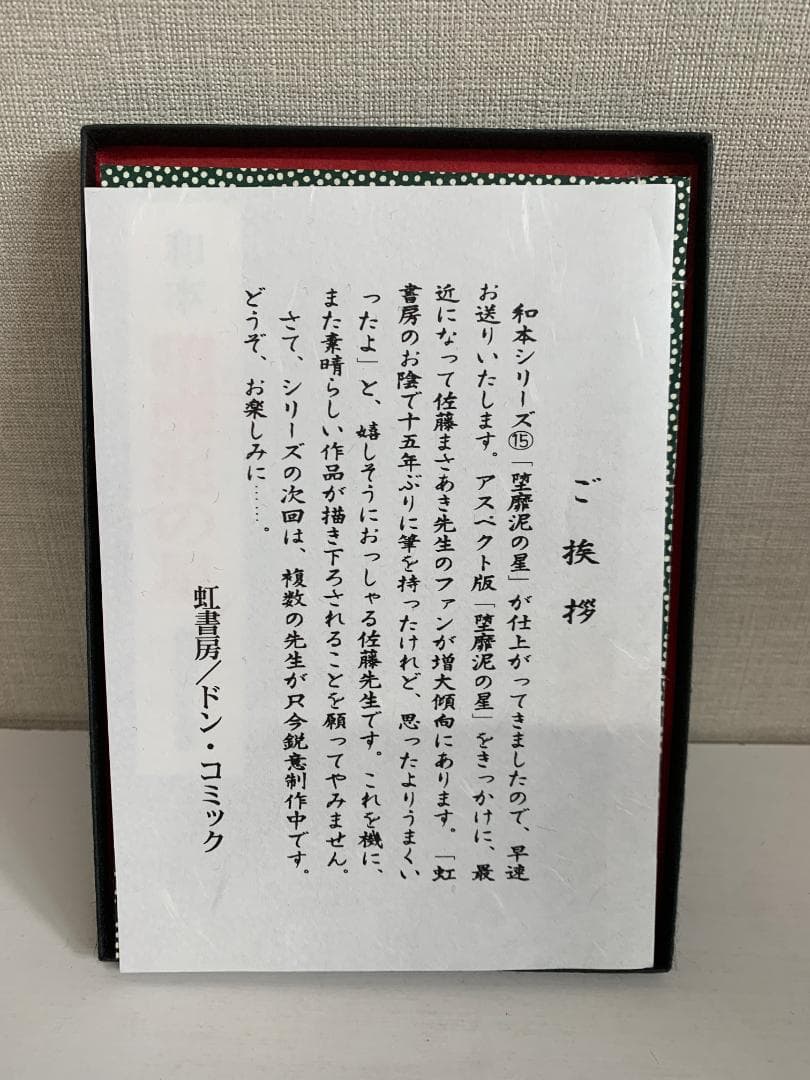 ご挨拶
和本シリーズ⑮「堕靡泥の星」が仕上がってきましたので、早速
お送りいたします。アスペクト版「堕靡泥の星」をきっかけに、最
近になって佐藤まさあき先生のファンが増大傾向にあります。「虹
書房のお陰で十五年ぶりに筆を持ったけれど、思ったよりうまくい
ったよ」と、嬉しそうにおっしゃる佐藤先生です。これを機に、
また素晴らしい作品が描き下ろされることを願ってやみません。
さて、シリーズの次回は、複数の先生が只今鋭意制作中です。
どうぞ、お楽しみに……。
虹書房／ドン・コミック